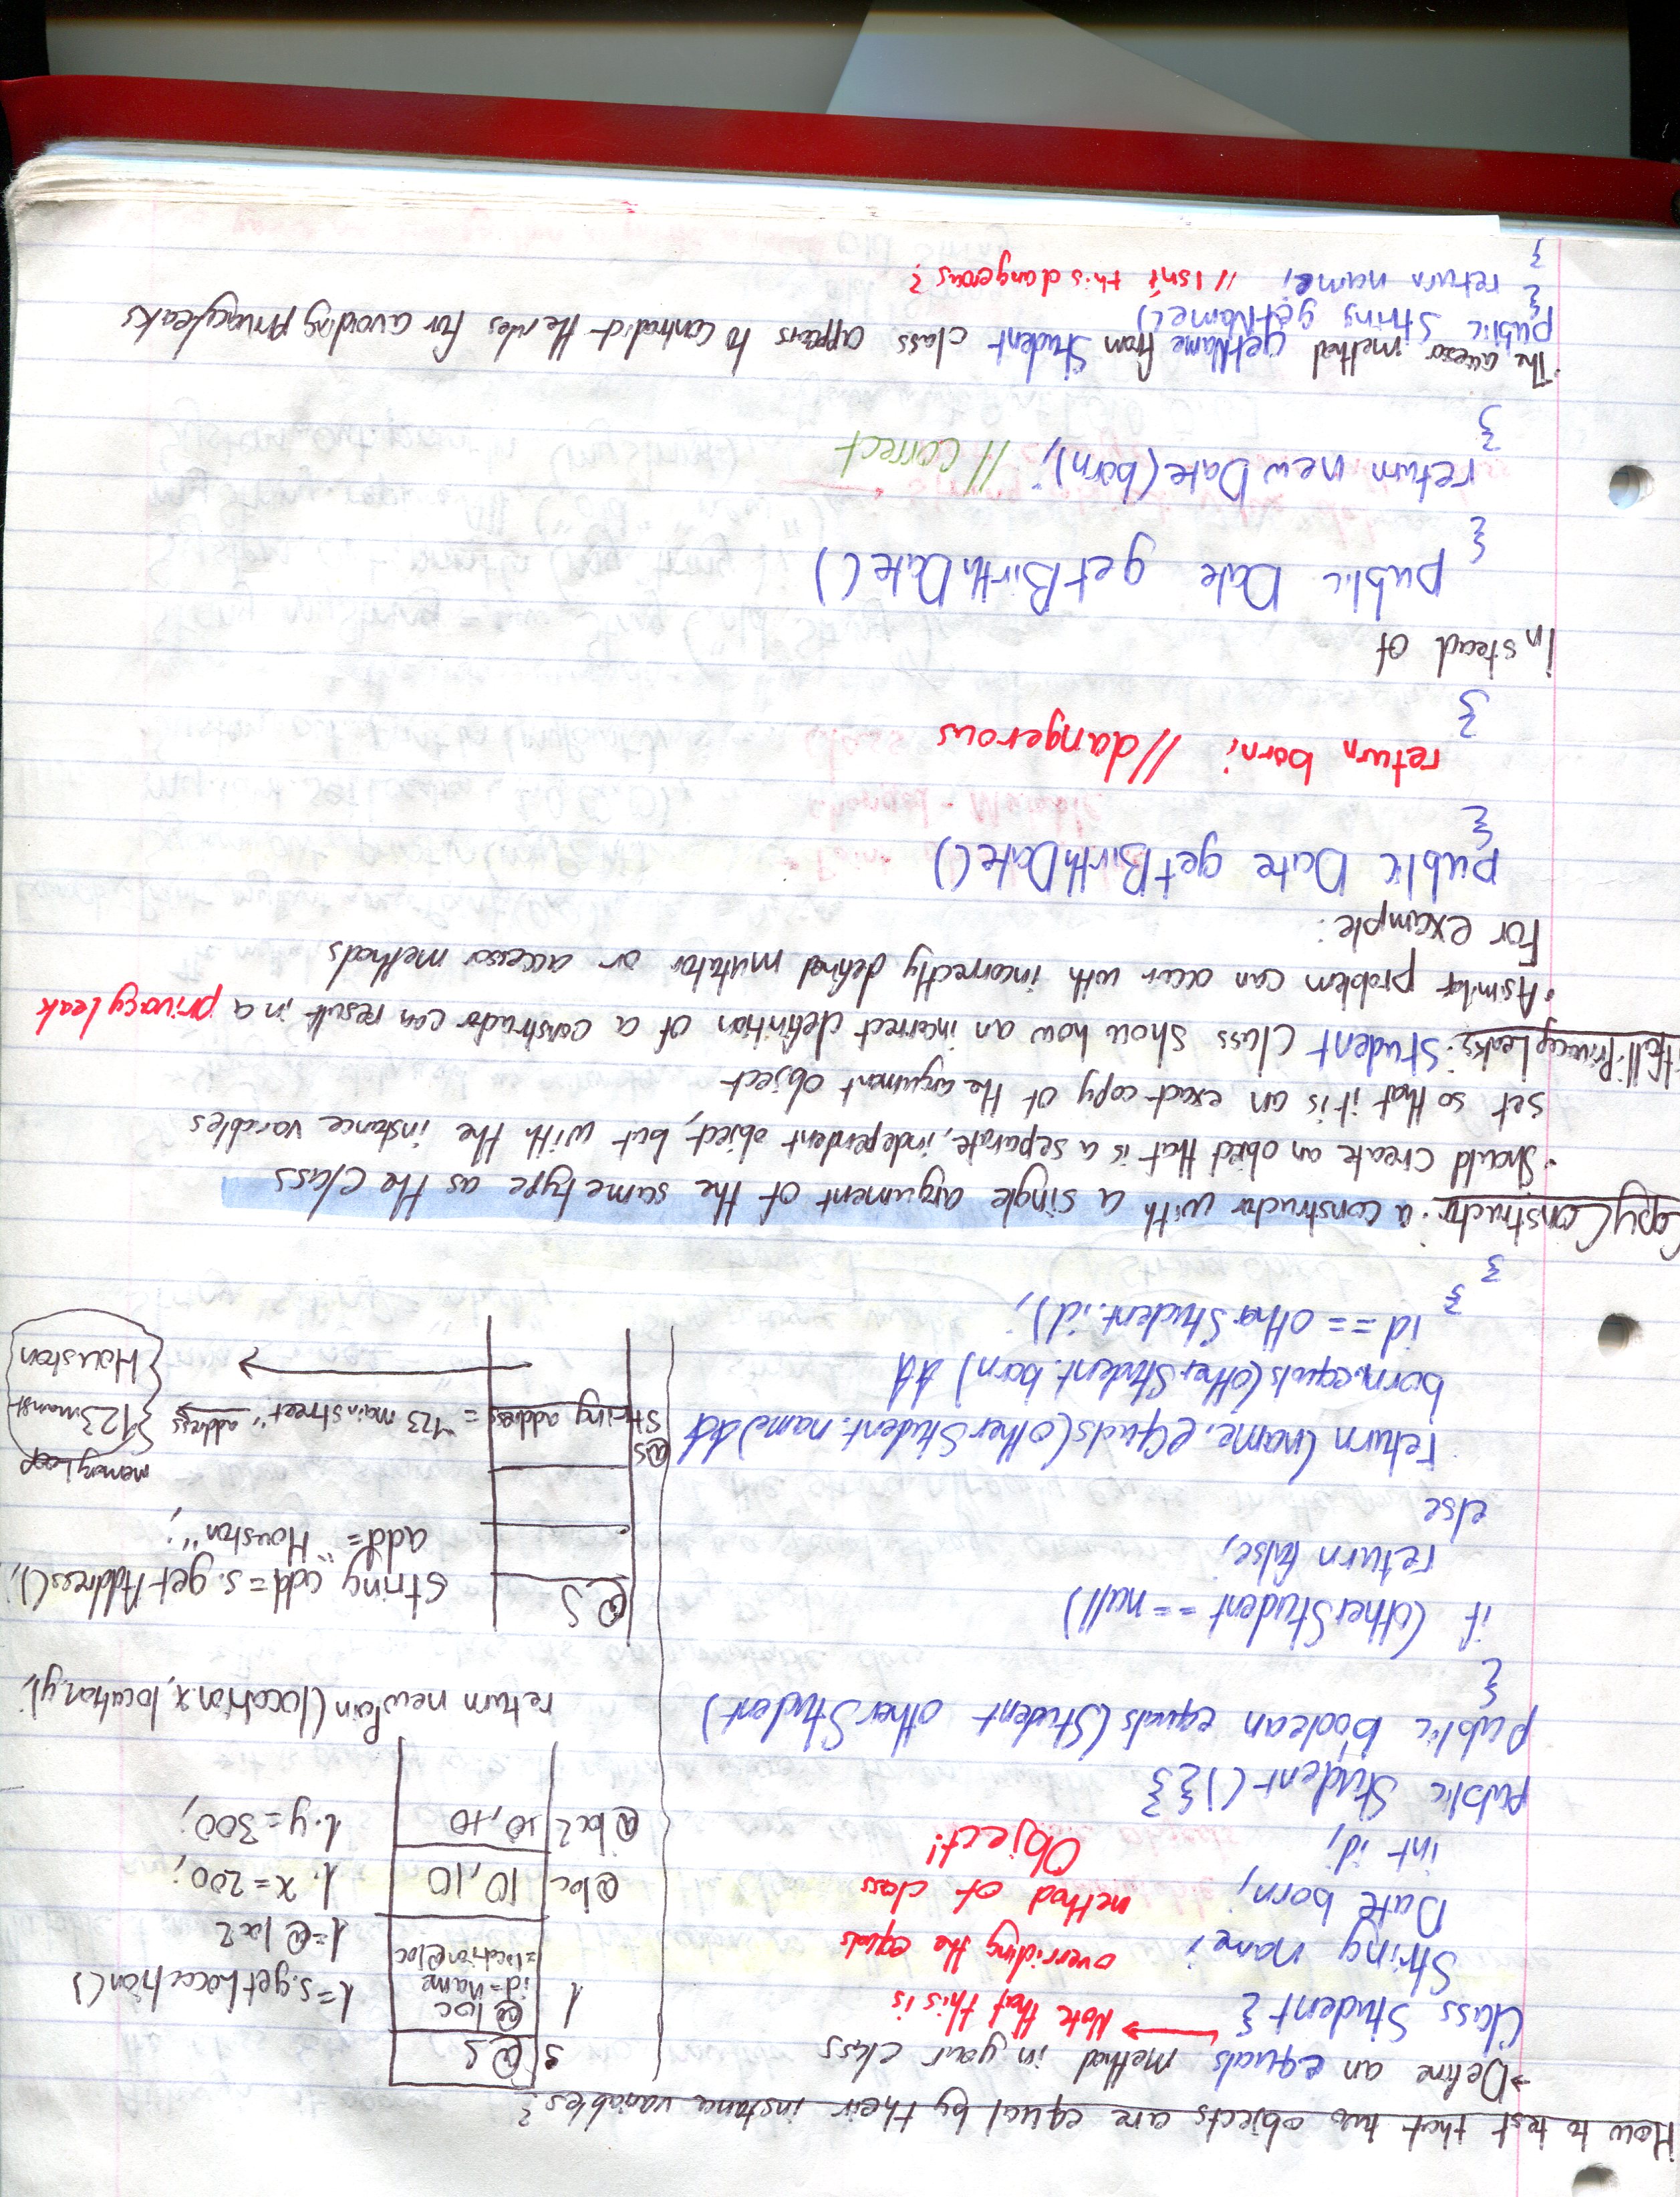 How to test that two objects are equal by their instance variables?
→ Define an equals method in your class
Class Student {
String name;
Date born;
int id;
public Student(){}
→ Note that this is
overriding the equals
method of class
Object!
public boolean equals(Student otherStudent)
{
if (otherStudent == null)
return false;
else
return (name.equals(otherStudent.name) &&
born.equals(otherStudent.born) &&
id == otherStudent.id);
}
}
s @S
l @loc
id=name
=location@loc
@loc 10,10
@loc2 10,10
l=s.getLocation()
l=@loc2
l.x=200;
l.y=300;
return newPoin(location.x, location.y);
@S
String add=s.getAddress();
add="Houston";
@S String address="123 mainstreet" address
memory Loop
123 mainst
Houston
Copy Constructor: a constructor with a single argument of the same type as the class
• Should create an object that is a separate, independent object, but with the instance variables
set so that it is an exact copy of the argument object
Pitfall: Privacy Leaks: Student Class show how an incorrect definition of a constructor can result in a privacy leak
• A similar problem can occur with incorrectly defined mutator or accessor methods
For example:
public Date getBirthDate()
{
return born; //dangerous
}
Instead of
public Date getBirthDate()
{
return new Date(born); //correct
}
• The accessor method getName from Student class appears to contradict the rules for avoiding privacy leaks
public String getName()
{
return name; //Isn't this dangerous?
}